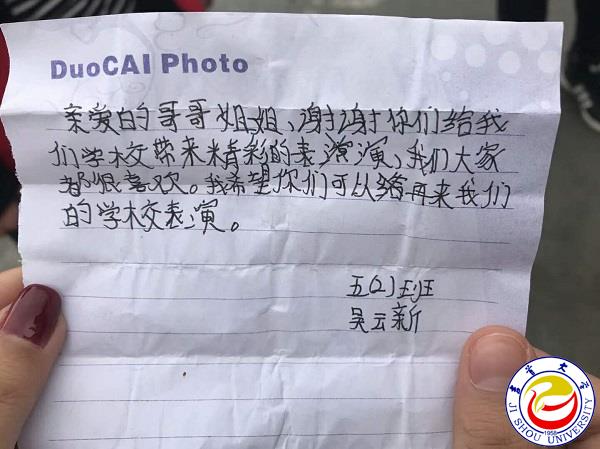 DuoCAI Photo
亲爱的哥哥姐姐、谢谢你们给我
们学校带来精彩的表演演、我们大家
都很喜欢。我希望你们可以再来我们
的学校表演。
五(2)班
吴云新
吉首大学
JI SHOU UNIVERSITY
1958